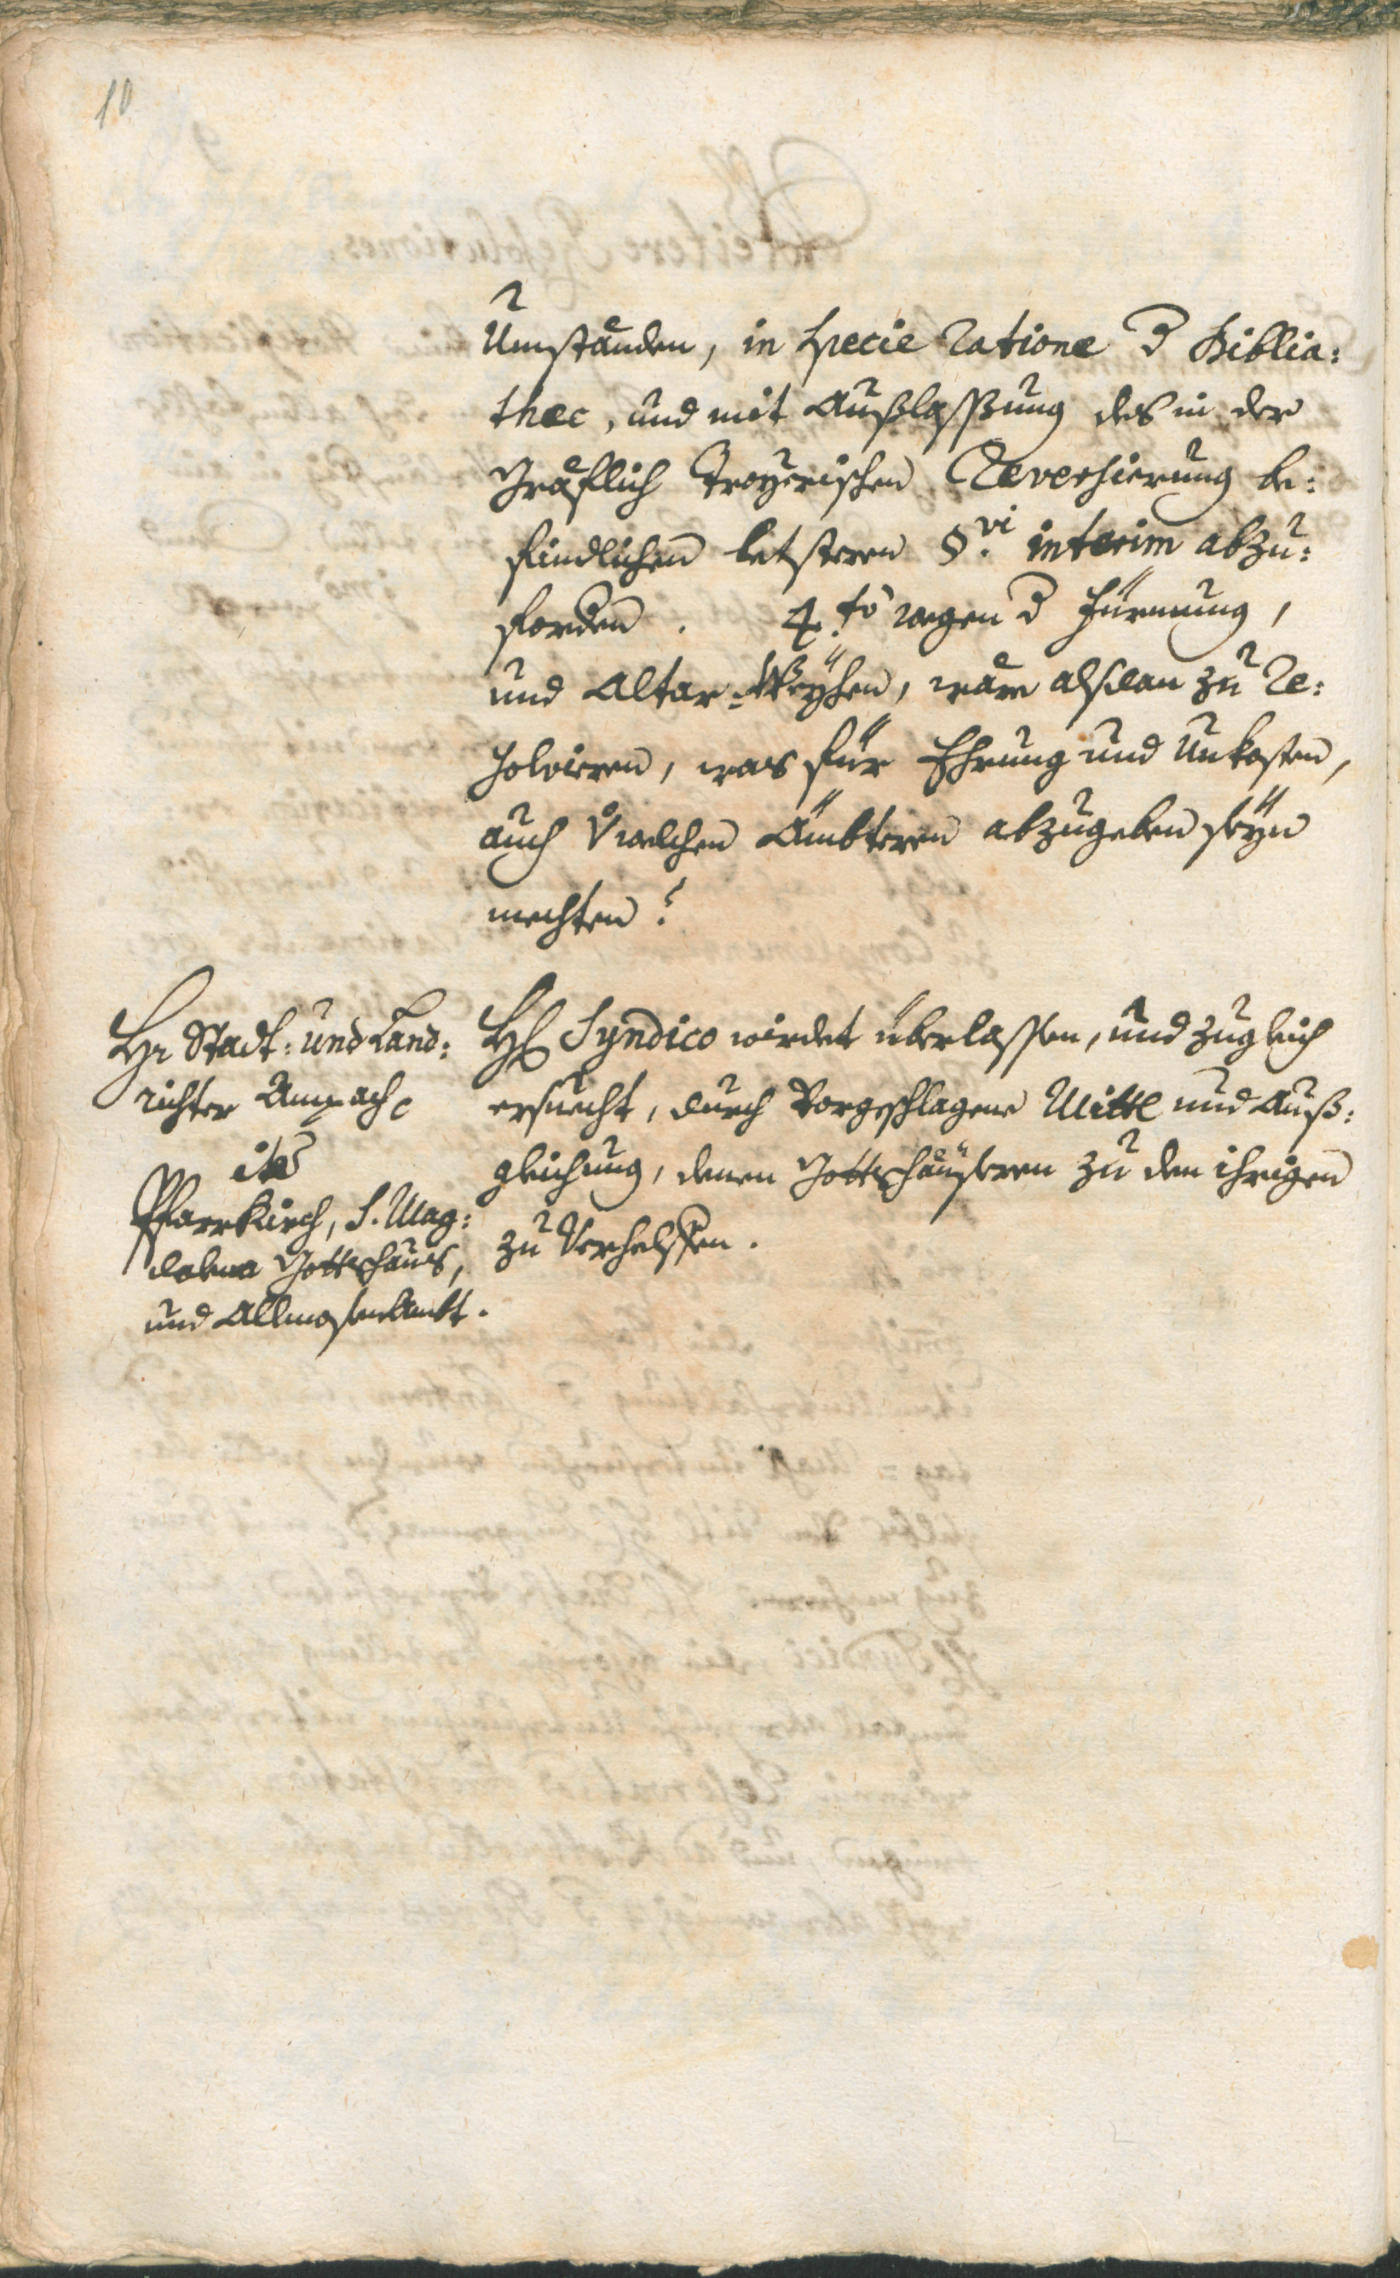 10
Umständen, in specie ratione d Biblia:
thec, und mit Außlassßung des in der
Gräflich Troyerischen Reversierung be:
findlichen letsteren §.vi interim abzu:
fordern. 4.to wegen d Fürmung,
und Altar-Weÿhen, wäre alsdan zu re:
solvieren, was für Ehrung und Unkosten,
auch v welchen Ämbteren abzugeben seyn
mechten?
Hr Stadt: und Land:
richter Ampach c
ita
Pfarrkirch, S. Mag:
dalena Gottshaus,
und Allmosenambt.
H Syndico wirdet überlassen, und zugleich
ersuecht, durch Vorgeschlagene Mittl und Auß:
gleichung, denen Gottshäuseren zu den ihrigen
zu Verhelffen.